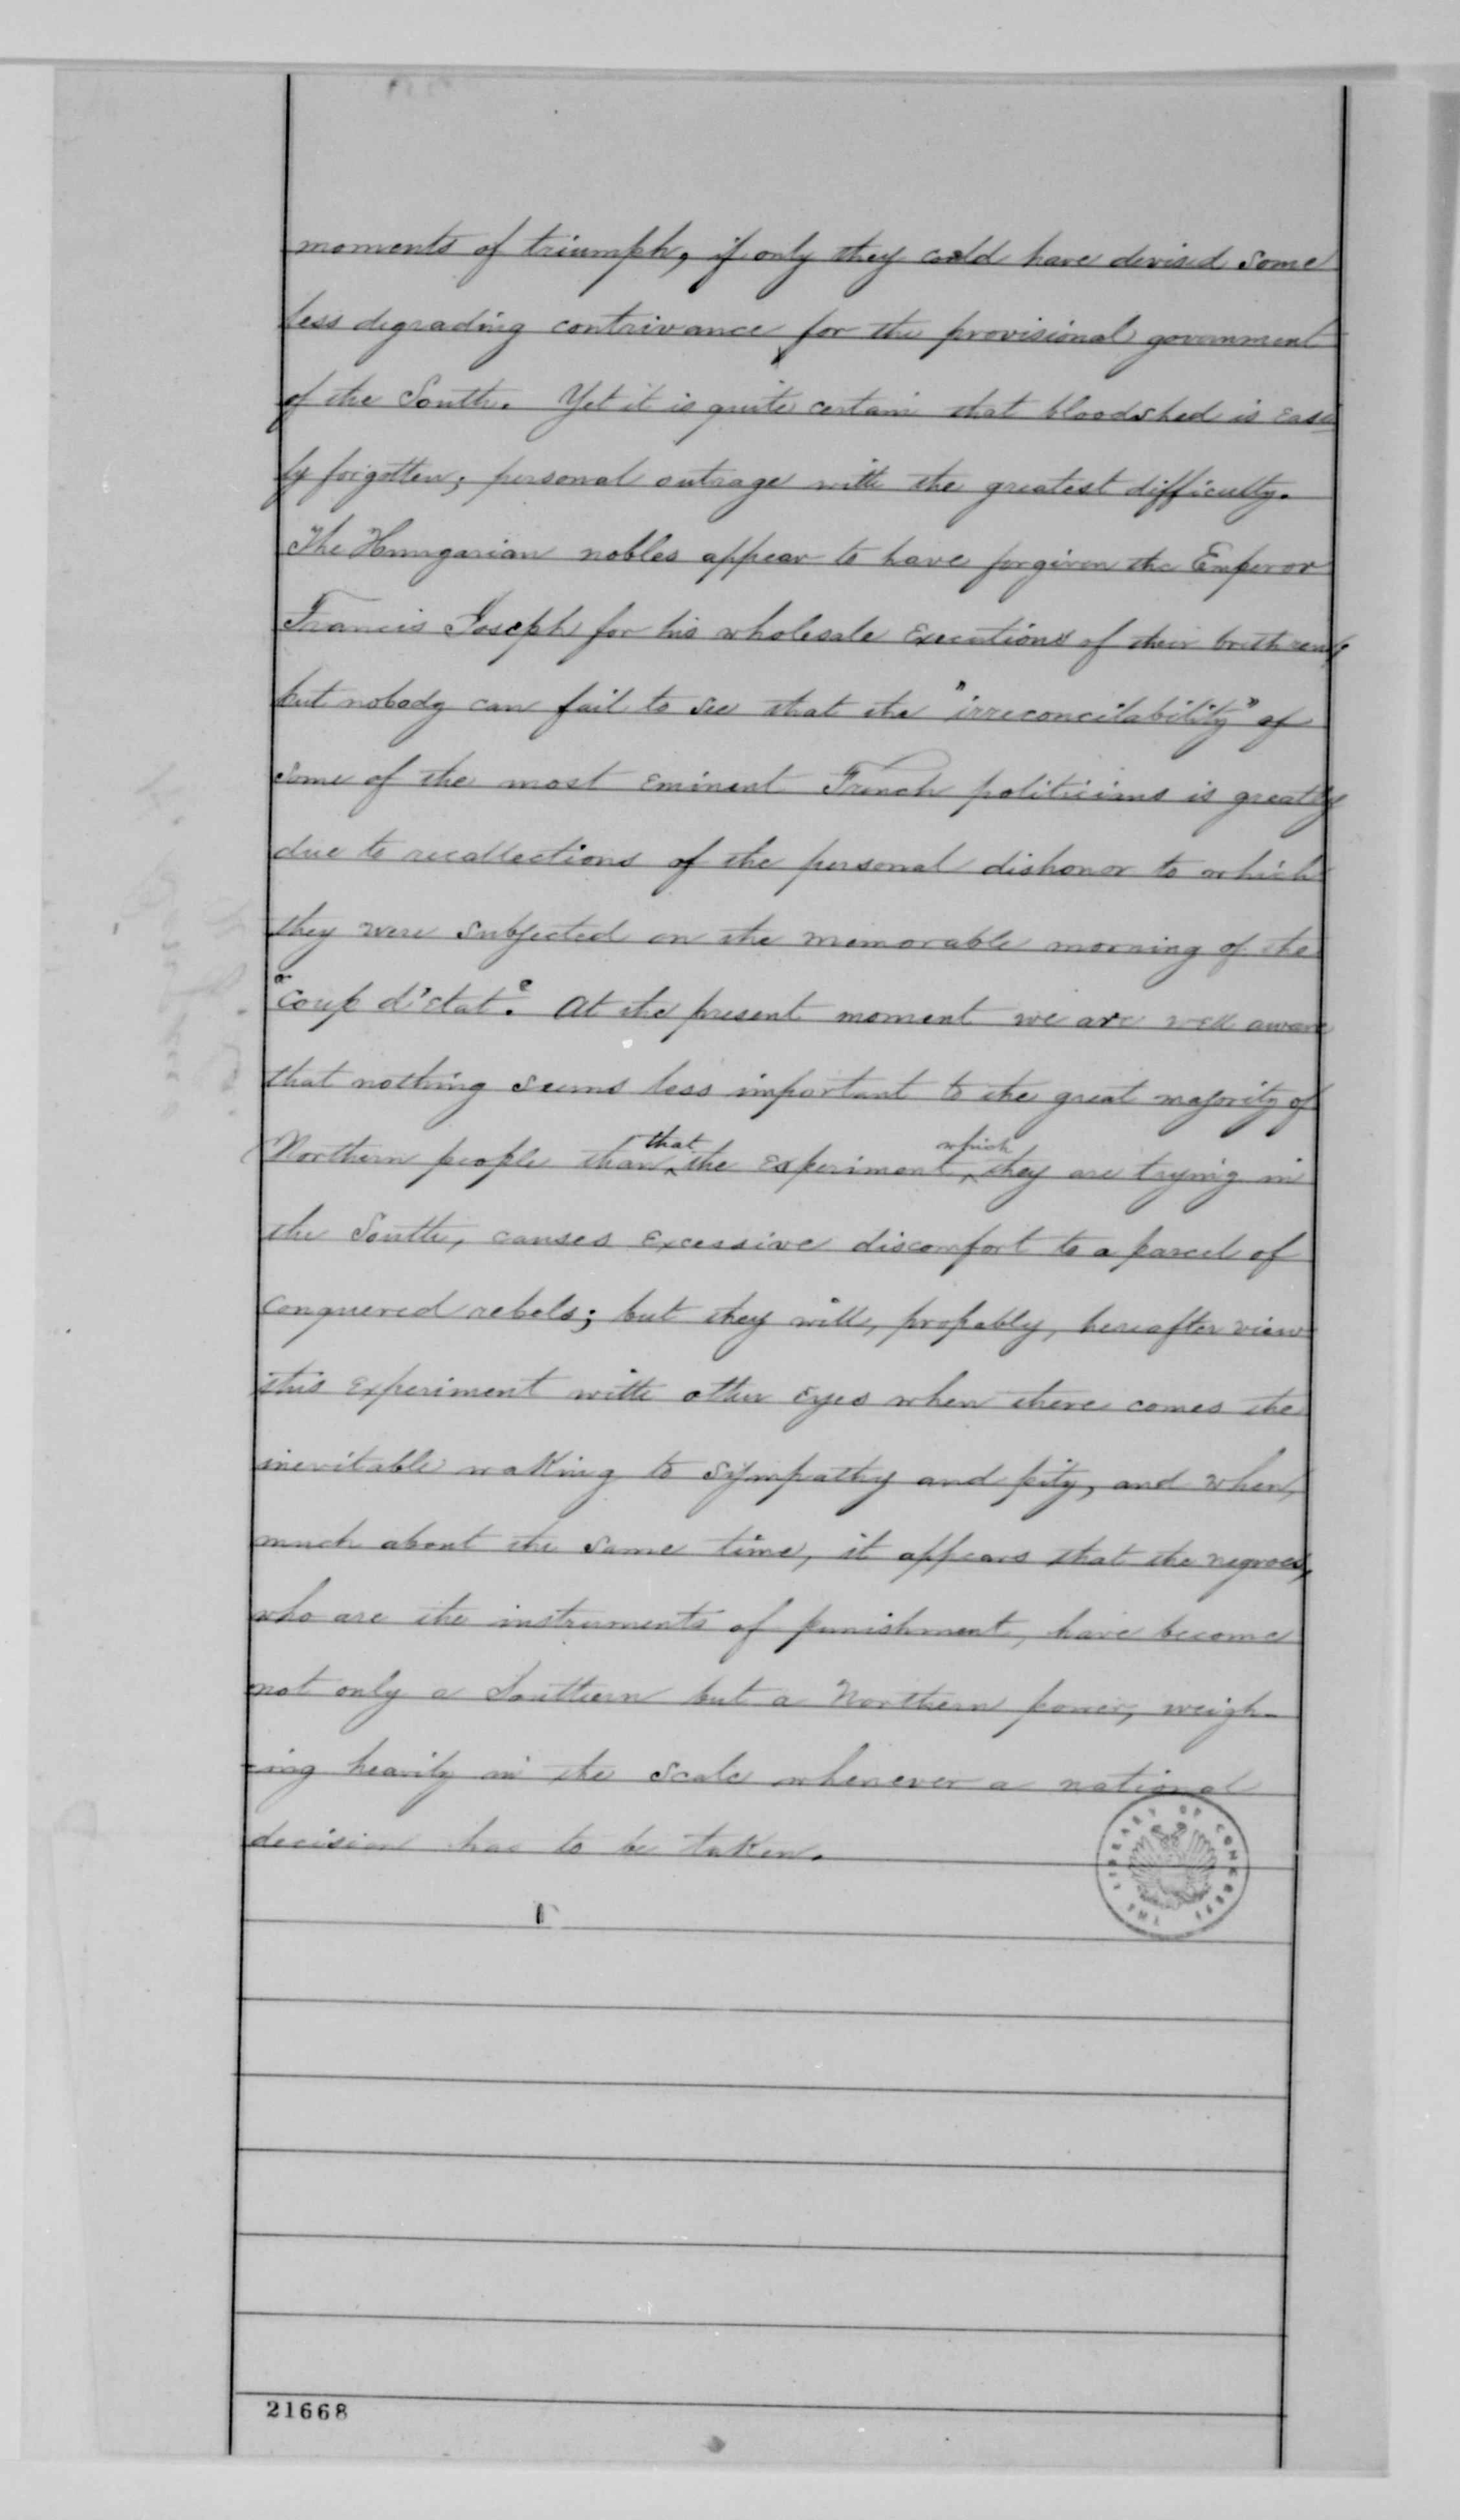 moments of triumph, if only they could have devised some
less degrading contrivance for the provisional government
of the South. Yet it is quite certain that bloodshed is easi
ly forgotten; personal outrage with the greatest difficulty.
The Hungarian nobles appear to have forgiven the Emperor
Francis Joseph for his wholesale executions of their brethren;
but nobody can fail to see that the "irreconcilability" of
some of the most eminent French politicians is greatly
due to recollections of the personal dishonor to which
they were subjected on the memorable morning of the
"Coup d'etat". At the present moment we are well aware
that nothing seems less important to the great majority of
Northern people than that the experiment which they are trying in
the South, causes excessive discomfort to a parcel of
conquered rebels; but they will, propably, hereafter view
this experiment with other eyes when there comes the
inevitable waking to sympathy and pity, and when,
much about the same time, it appears that the negroes,
who are the instruments of punishment, have become
not only a Southern but a Northern power, weigh-
-ing heavily in the scale whenever a national
decision has to be taken.
THE LIBRARY OF CONGRESS
21668